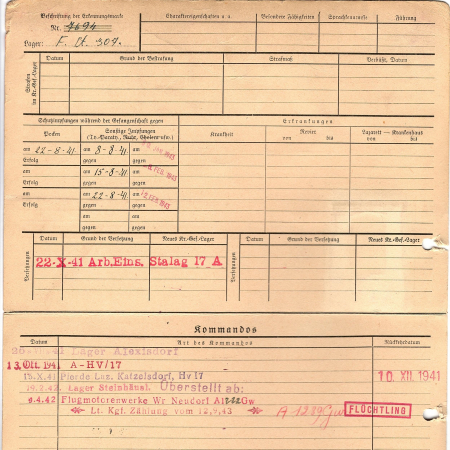 Beschriftung der Erkennungsmarke
Charaktereigenschaften u. s.
Besondere Fähigkeiten
Sprachkenntnisse
Führung
Nr. 7694
Lager: F. St. 307.
Strafen im Kr.-Gef.-Lager
Datum
Grund der Bestrafung
Strafmaß
Verbüßt, Datum
Schutzimpfungen während der Gefangenschaft gegen
Erkrankungen
Pocken
Sonstige Impfungen
(Ty.-Paraty., Ruhr, Cholera usw.)
Krankheit
Revier
Lazarett – Krankenhaus
von
bis
von
bis
am 22-8-41.
am 8-8-41
Erfolg
gegen
am
am 15-8-41
Erfolg
gegen
am
am 22-8-41
Erfolg
gegen
am
gegen
am
gegen
Versetzungen
Datum
Grund der Versetzung
Neues Kr.-Gef.-Lager
Versetzungen
Datum
Grund der Versetzung
Neues Kr.-Gef.-Lager
22-X-41 Arb.Eins. Stalag 17 A
Kommandos
Datum
Art des Kommandos
Rückkehrdatum
Lager Alexisdorf
13. Okt. 1941 A-HV/17
10 XII. 1941
15.X.41 Pferde Laz. Katzelsdorf, Hv 17
19.2.42 Lager Steinhäusl. Überstellt ab:
6.4.42 Flugmotorenwerke Wr Neudorf Gw
Lt. Kgf. Zählung vom 12.9.43
A 1289 Gw
FLÜCHTLING